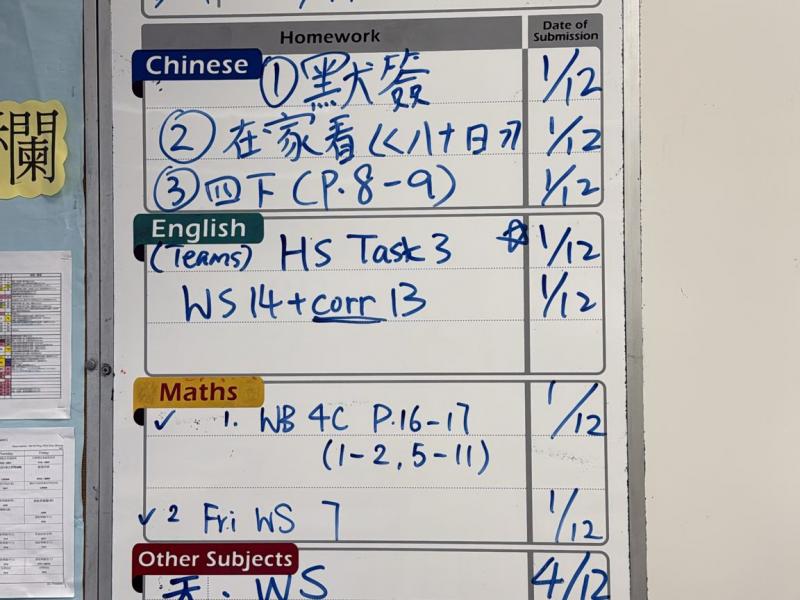 Homework
Date of Submission
Chinese
① 默簽 1/12
② 在家看《八十日》 1/12
③ 四下 (P.8-9) 1/12
English
(Teams) HS Task 3 ☆ 1/12
WS 14 + corr 13 1/12
Maths
✓ 1. WB 4C P.16-17 1/12
(1-2, 5-11)
✓ 2 Fri WS 7 1/12
Other Subjects
WS 4/12
欄